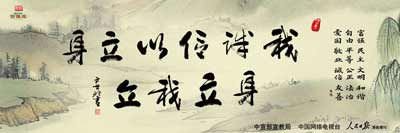 我诚信以立身
身立我立
富强 民主 文明 和谐
自由 平等 公正 法治
爱国 敬业 诚信 友善
中宣部宣教局 中国网络电视台 人民日报